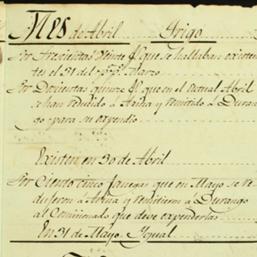 Mes de Abril Trigo
Por trescientas veinte f. que se hallaban existen
tes el 31 del ppº Marzo
Por Doscientas quinze f. que en el actual Abril
se han reducido a Arina y remitido a Duran
go para su expendio
Existen en 30 de Abril
Por Ciento cinco fanegas que en Mayo se re
dujeron a Arina y remitieron a Durango
al Comisionado que deve expenderlas
En 31 de Mayo Ygual